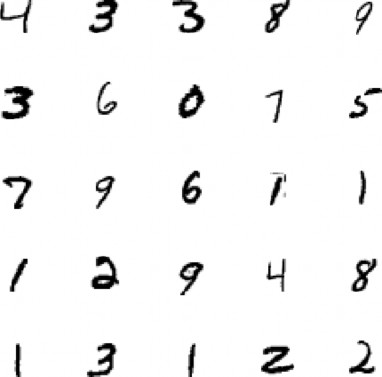 4 3 3 8 9
3 6 0 7 5
7 9 6 1 1
1 2 9 4 8
1 3 1 2 2